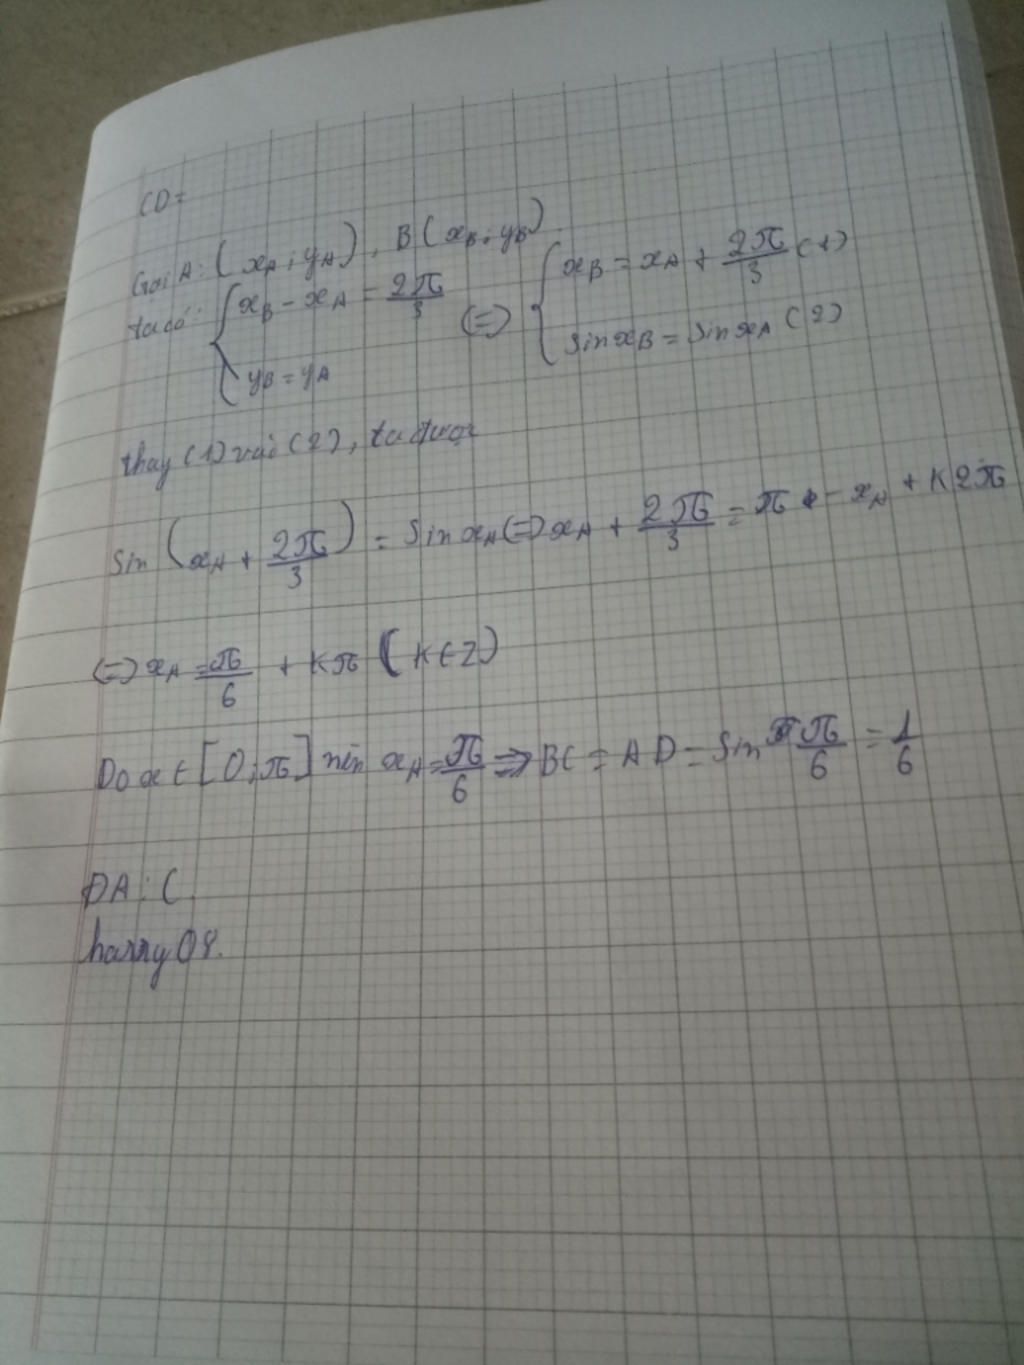 CD =
Gọi A: (xA; yA), B(xB; yB)
ta có: { xB - xA = 2π/3 ; yB = yA (=) { xB = xA + 2π/3 (1) ; sin xB = sin xA (2)
thay (1) vào (2), ta được
sin (xA + 2π/3) = sin xA (=) xA + 2π/3 = π - xA + K2π
(=) xA = π/6 + Kπ (K ∈ Z)
Do x ∈ [0; π] nên xA = π/6 => BC = AD = sin π/6 = 1/6
ĐA: C.
harry08.